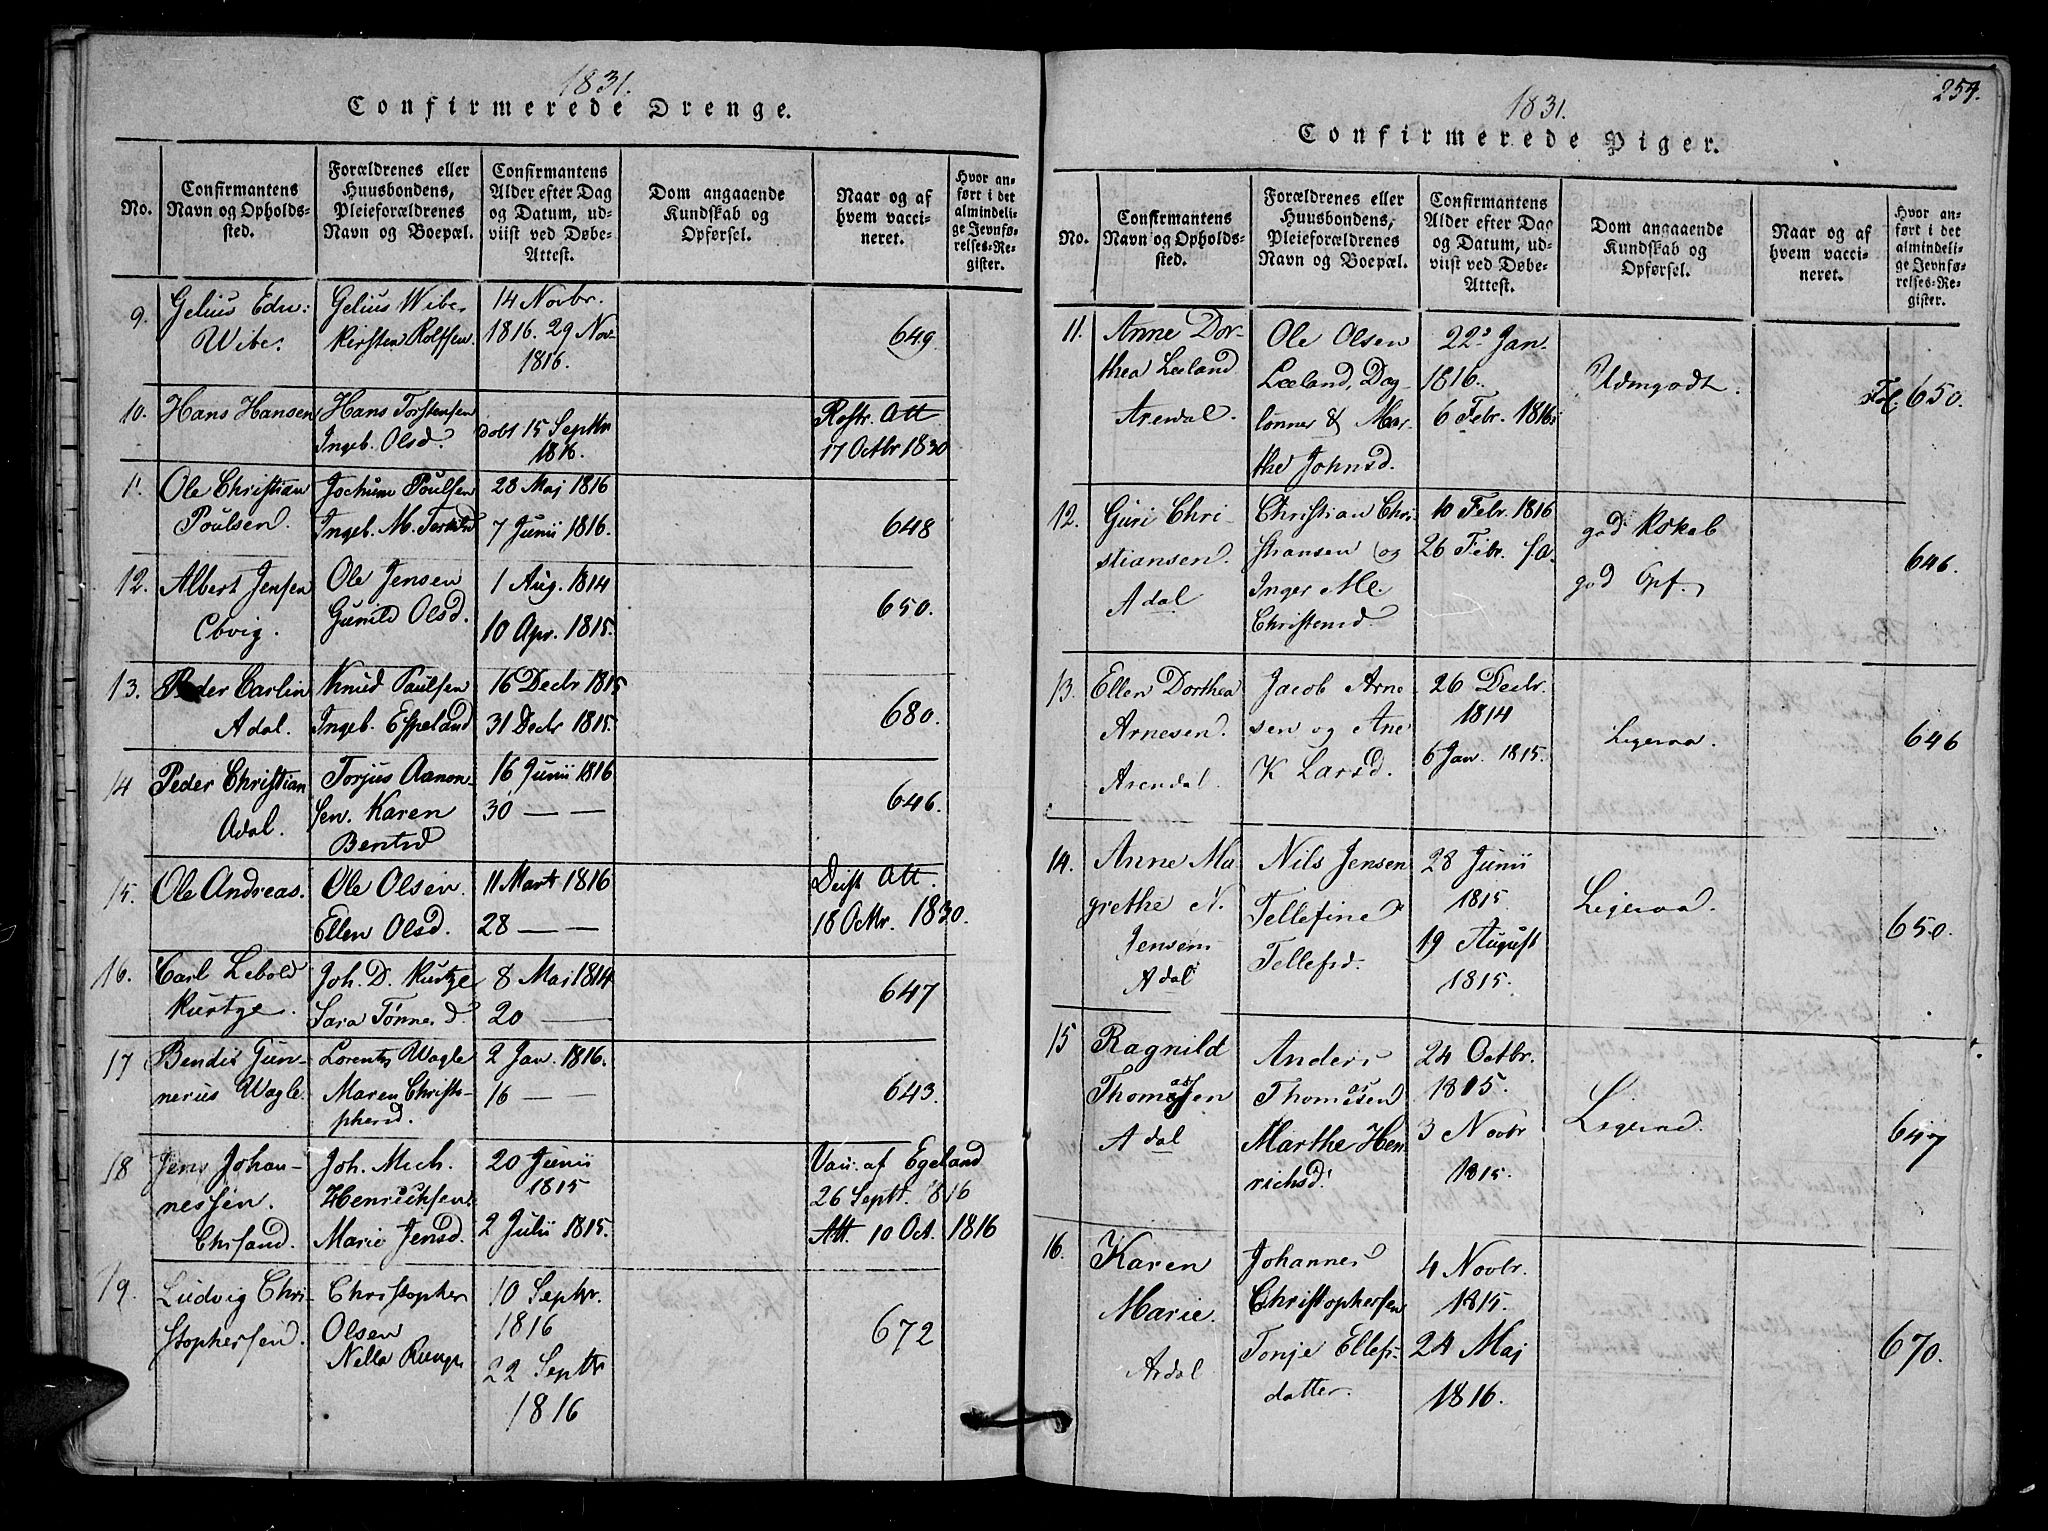 1831.
Confirmerede Drenge.
No.
Confirmantens
Navn og Opholds-
sted.
Forældrenes eller
Huusbondens,
Pleieforældrenes
Navn og Boepæl.
Confirmantens
Alder efter Dag
og Datum, ud-
viist ved Døbe-
Attest.
Dom angaaende
Kundskab og
Opførsel.
Naar og af
hvem vacci-
neret.
Hvor an-
ført i det
almindeli-
ge Jevnfø-
relses-Re-
gister.
9.
Gelius Edv:
Wibe.
Gelius Wibe,
Kirsten Rolfsen.
14 Novbr.
1816. 29 Nov.
1816.
649.
10.
Hans Hansen
Hans Torstensen
Ingeb. Olsd.
døbt 15 Septbr
1816.
Att
17 Octbr 1830
11
Ole Christian
Poulsen.
Jochum Poulsen
Ingeb. M.
28 Maj 1816
7 Junii 1816.
648
12.
Albert Jensen
Ole Jensen
Gunild Olsd.
1 Aug. 1814
10 Apr. 1815.
650.
13.
Peder Carlin
Adal.
Knud Paulsen
Ingeb. Espeland
16 Decbr 1815
31 Decbr 1815.
680.
14
Peder Christian
Adal.
Torjus Aanon-
sen. Karen
Bentsd
16 Junii 1816
30 — —
646.
15.
Ole Andreas.
Ole Olsen.
Ellen Olsd.
11 Mart 1816
28 — —
Att.
18 Octbr. 1830.
16.
Carl Lebold
Kurtze.
Joh. D. Kurtze
Sara Tønnesd.
8 Mai 1814
20 —
647
17
Bendix Gun-
nerus Wagle.
Lorents Wagle
Maren Christo-
phersd.
2 Jan. 1816.
16 — —
643.
18
Jens Johan-
nessen.
Chrsand.
Joh. Mich.
Henrichsen
Marie Jensd.
20 Junii
1815
2 Julii 1815.
Vac. af Egeland
26 Septbr. 1816
Att. 10 Oct. 1816
19.
Ludvig Chri-
stophersen.
Christopher
Olsen
Nella Runge
10 Septbr.
1816
22 Septbr
1816
672
254.
1831.
Confirmerede Piger.
No.
Confirmantens
Navn og Opholds-
sted.
Forældrenes eller
Huusbondens,
Pleieforældrenes
Navn og Boepæl.
Confirmantens
Alder efter Dag
og Datum, ud-
viist ved Døbe-
Attest.
Dom angaaende
Kundskab og
Opførsel.
Naar og af
hvem vacci-
neret.
Hvor an-
ført i det
almindeli-
ge Jevnfø-
relses-Re-
gister.
11.
Anne Dor-
thea Leeland
Arendal.
Ole Olsen
Leeland, Dag-
lønner & Mar-
the Johnsd.
22 Jan.
1816.
6 Febr. 1816.
Udmgodt.
Fol. 650.
12.
Guri Chri-
stiansen.
Adal
Christian Chri-
stiansen og
Inger Me.
Christensd.
10 Febr. 1816
26 Febr. s. a.
god Kskab
god Opf.
646.
13.
Ellen Dorthea
Arnesen.
Arendal.
Jacob Arne-
sen og Ane
K Larsd.
26 Decbr.
1814
6 Jan. 1815.
Ligesaa.
646
14.
Anne Ma-
grethe N.
Jensen
Adal
Nils Jensen
Tellefine
Tellefsd.
28 Junii
1815.
19 August
1815.
Ligesaa.
650.
15
Ragnild
Thomassen
Adal
Anders
Thomassen
Marthe Hen-
richsd.
24 Octbr.
1815.
3 Novbr
1815.
Ligesaa.
647
16.
Karen
Marie.
Ardal
Johannes
Christophersen
Tonje Ellefs-
datter.
4 Novbr.
1815.
24 Maj
1816.
670.